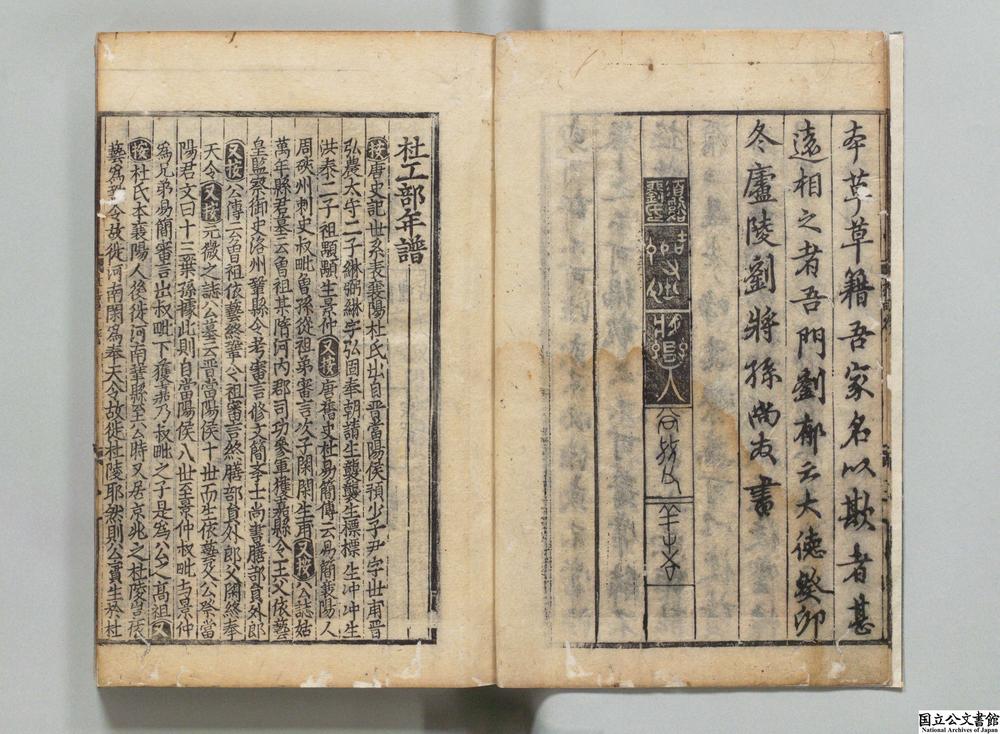 本草草籍吾家名以欺者甚
遠相之者吾門劉郁云大德癸卯
冬廬陵劉將孫尚友書
須溪
劉氏
人
杜工部年譜
按唐史記世系表襄陽杜氏出自晉當陽侯預少子尹字世甫晉
弘農太守二子綝弼綝字弘固奉朝請生襲襲生標標生冲冲生
洪泰二子祖顒顒生景仲又按唐舊史杜易簡傳云易簡襄陽人
周硤州刺史叔毗曾孫從祖弟審言次子閑閑生甫又按公誌姑
萬年縣君墓云曾祖某隋河內郡司功參軍獲嘉縣令王父依藝
皇監察御史洛州鞏縣令考審言修文館學士尚書膳部員外郎
又按公傳云曾祖依藝終鞏令祖審言終膳部員外郎父閑終奉
天令又按元微之誌公墓云晉當陽侯十世而生依藝又公祭當
陽君文曰十三葉孫據此則自當陽侯八世至景仲叔毗与景仲
為兄弟易簡審言出叔毗下獲嘉乃叔毗之子是為公之髙祖又
按杜氏本襄陽人後徙河南鞏縣至公時又居京兆之杜陵豈依
藝為鞏令故徙河南閑為奉天令故徙杜陵耶然則公實生於杜
国立公文書館
National Archives of Japan